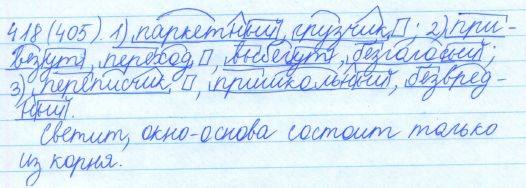 418(405). 1) паркетный, грузчик; 2) при-
везут, переход, выбегут, безгласный;
3) переписчик, пришкольный, безвред-
ный.
Светит, окно-основа состоит только
из корня.